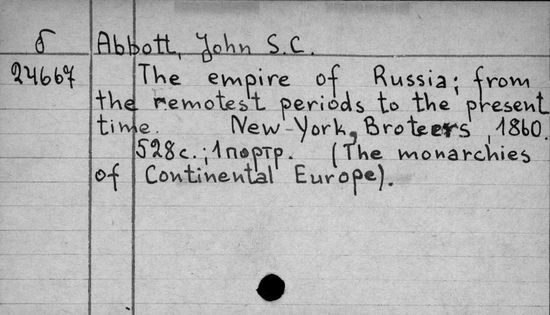 б Abbott, John S.C.
24667 The empire of Russia; from
the remotest periods to the present
time. New-York, Broteers, 1860.
528с.; 1портр. (The monarchies
of Continental Europe).